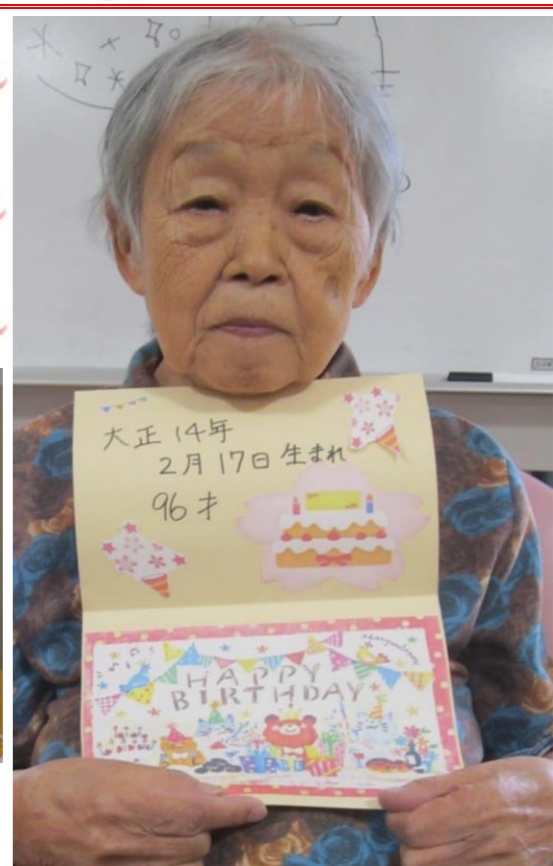 大正14年
2月17日 生まれ
96才
HAPPY
BIRTHDAY